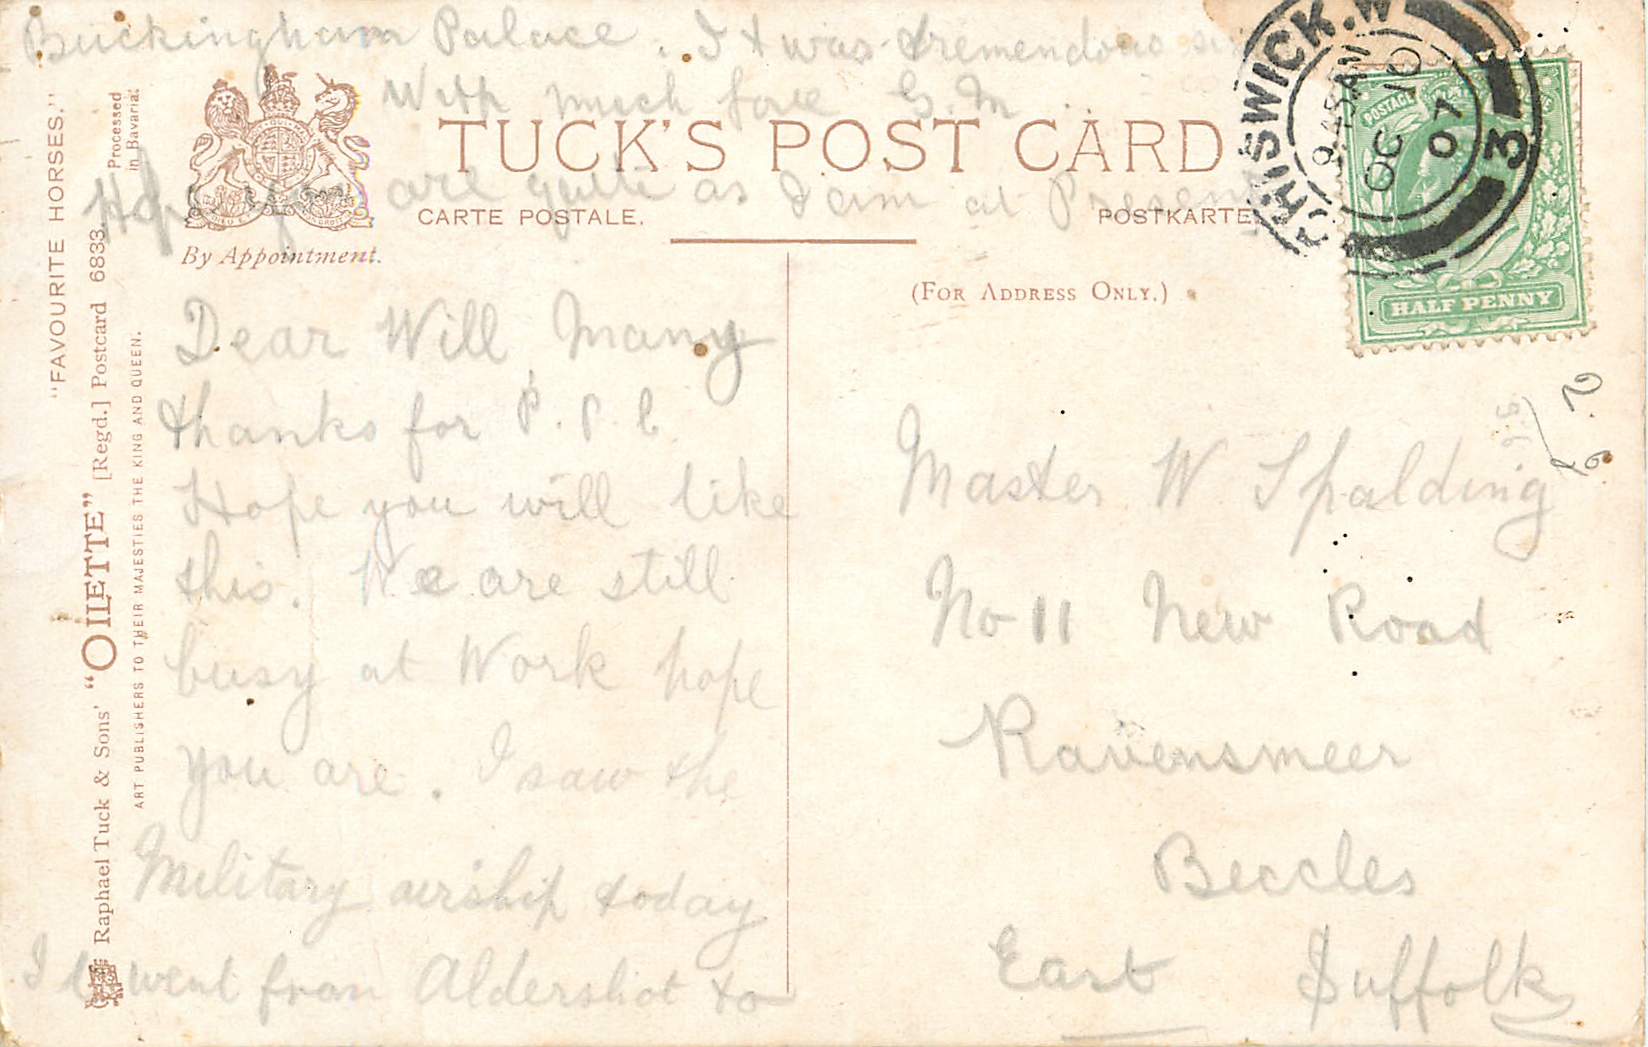 Buckingham Palace. It was tremendous
With much love G.M
TUCK'S POST CARD
Hope you are quite as I am at Present
CARTE POSTALE.
POSTKARTE.
By Appointment.
(FOR ADDRESS ONLY.)
CHISWICK.W
9.45AM
OC 10
07
3
POSTAGE
HALF PENNY
"FAVOURITE HORSES."
Processed
in Bavaria.
Raphael Tuck & Sons' "OILETTE" [Regd.] Postcard 6833.
ART PUBLISHERS TO THEIR MAJESTIES THE KING AND QUEEN.
Dear Will Many
thanks for P.P.C.
Hope you will like
this. We are still
busy at Work hope
you are. I saw the
Military airship today
It went from Aldershot to
Master W Spalding
No 11 New Road
Ravensmeer
Beccles
East Suffolk